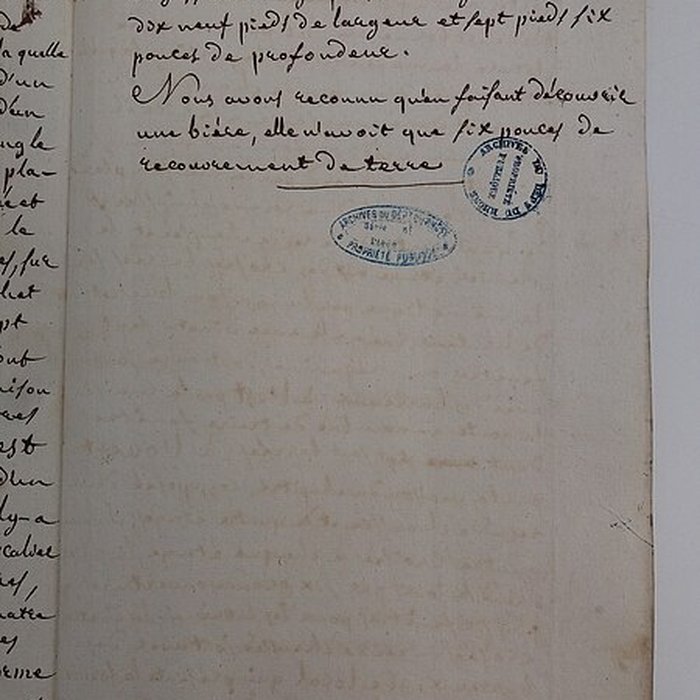 de
laquelle
d'un
d'un
angle
pla-
et
le
, sur
pt
out
aison
res
est
d'un
ly-a
scalier
es,
uatre
es
eme
dix neuf pieds de largeur et sept pieds six
pouces de profondeur.
Nous avons reconnu qu'en faisant découvrir
une biére, elle n'avoit que six pouces de
recouvrement de terre
ARCHIVES DU DÉP.T DU RHONE
PROPRIÉTÉ PUBLIQUE
ARCHIVES DU DÉPT DU RHÔNE
PROPRIÉTÉ PUBLIQUE